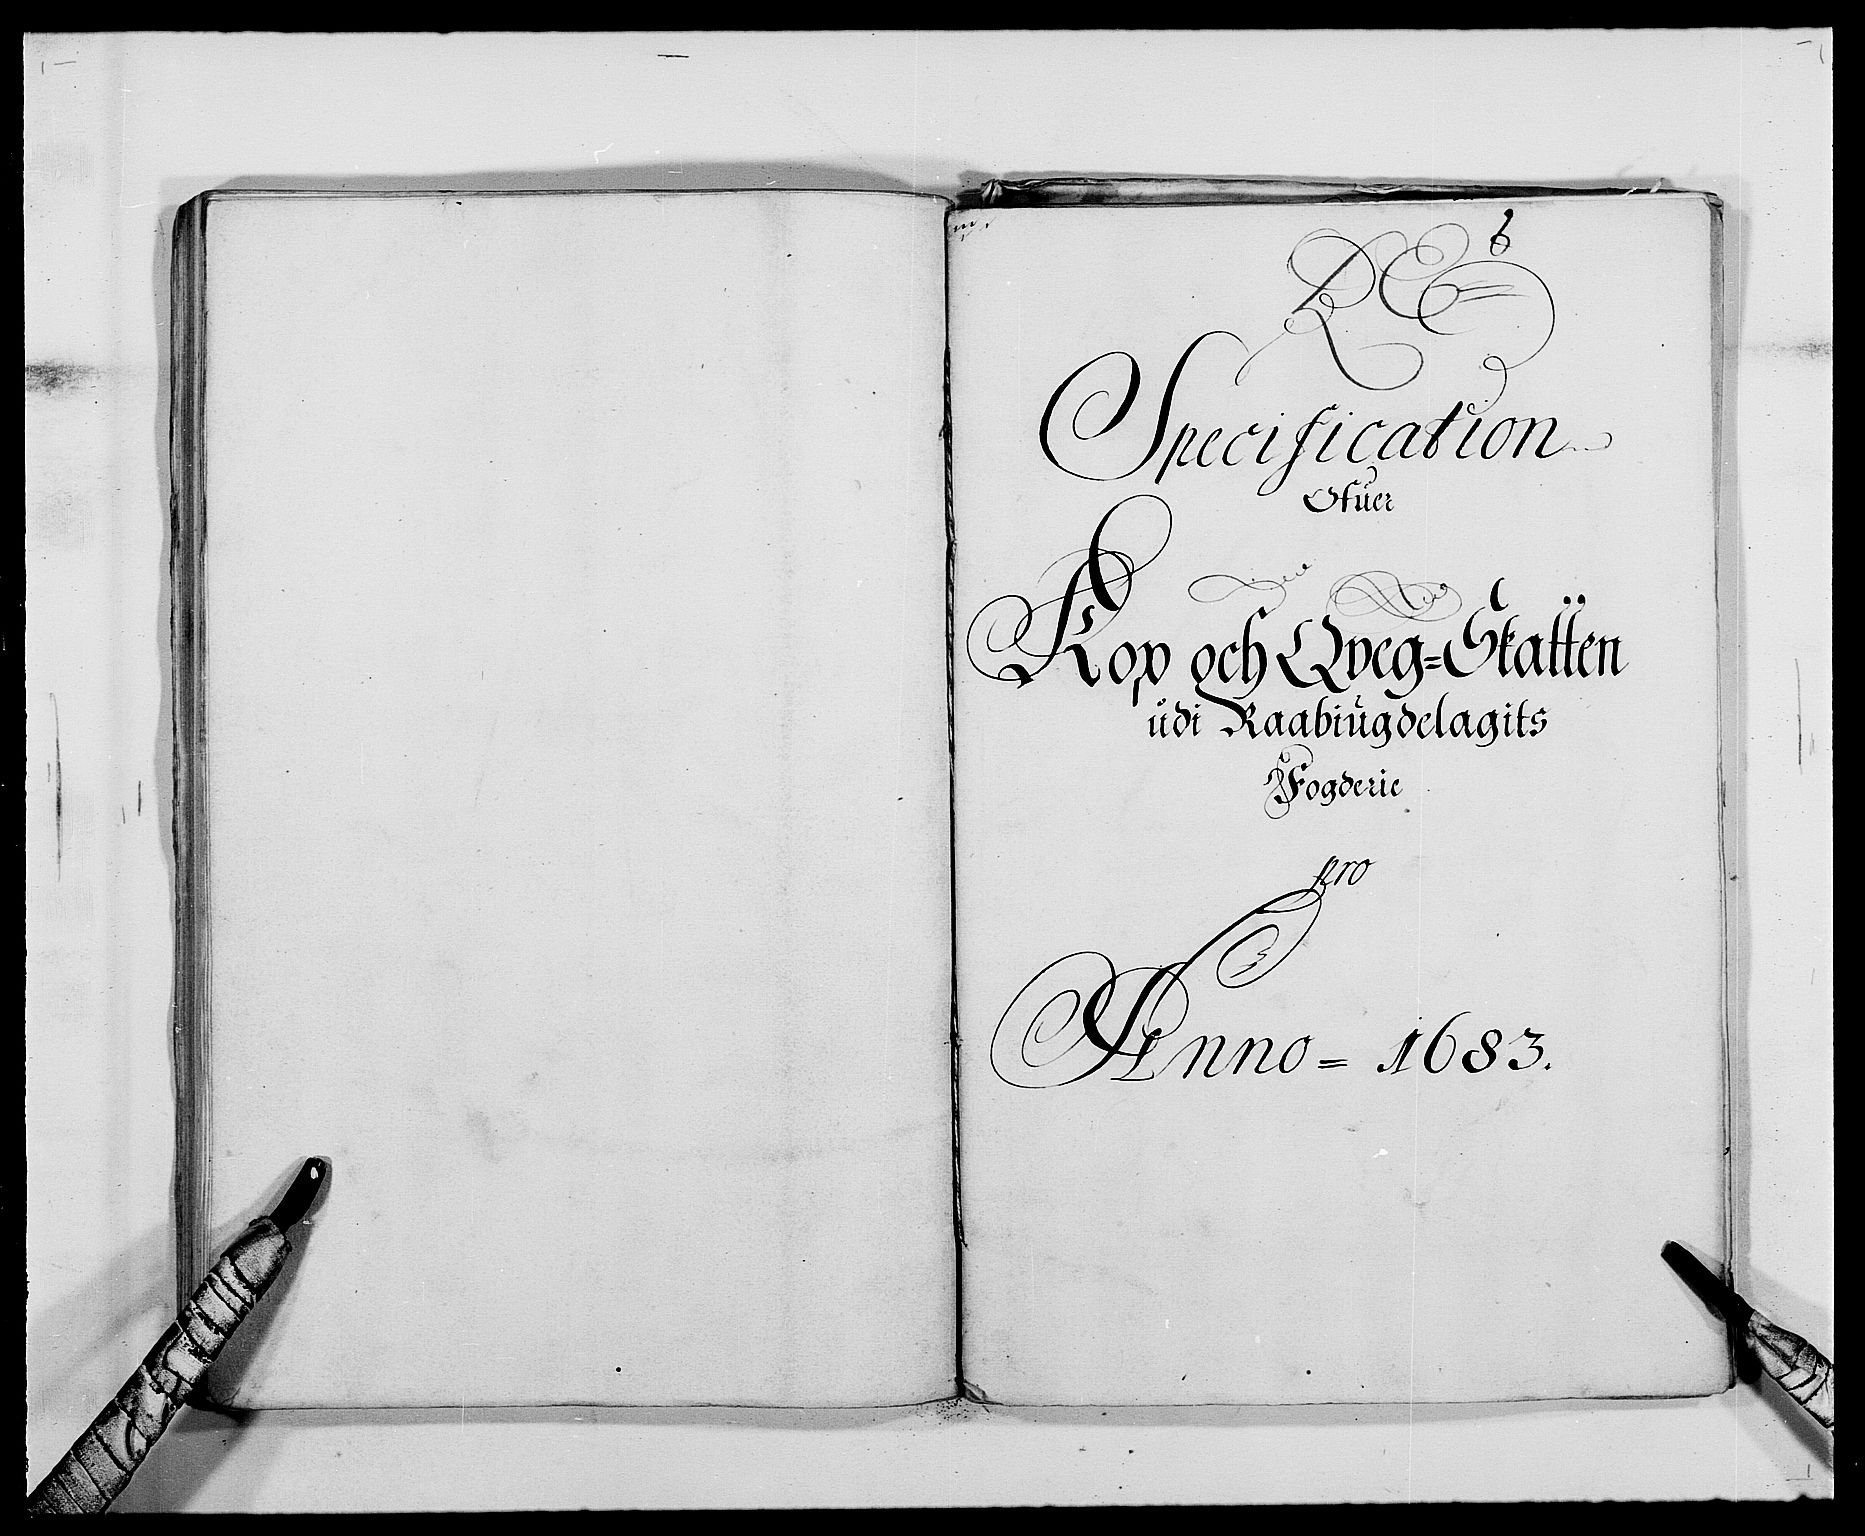 6
Specification
Ofuer
Kop och Qveg=Skatten
udi Raabiugdelagits
Fogderie
pro
Anno = 1683.